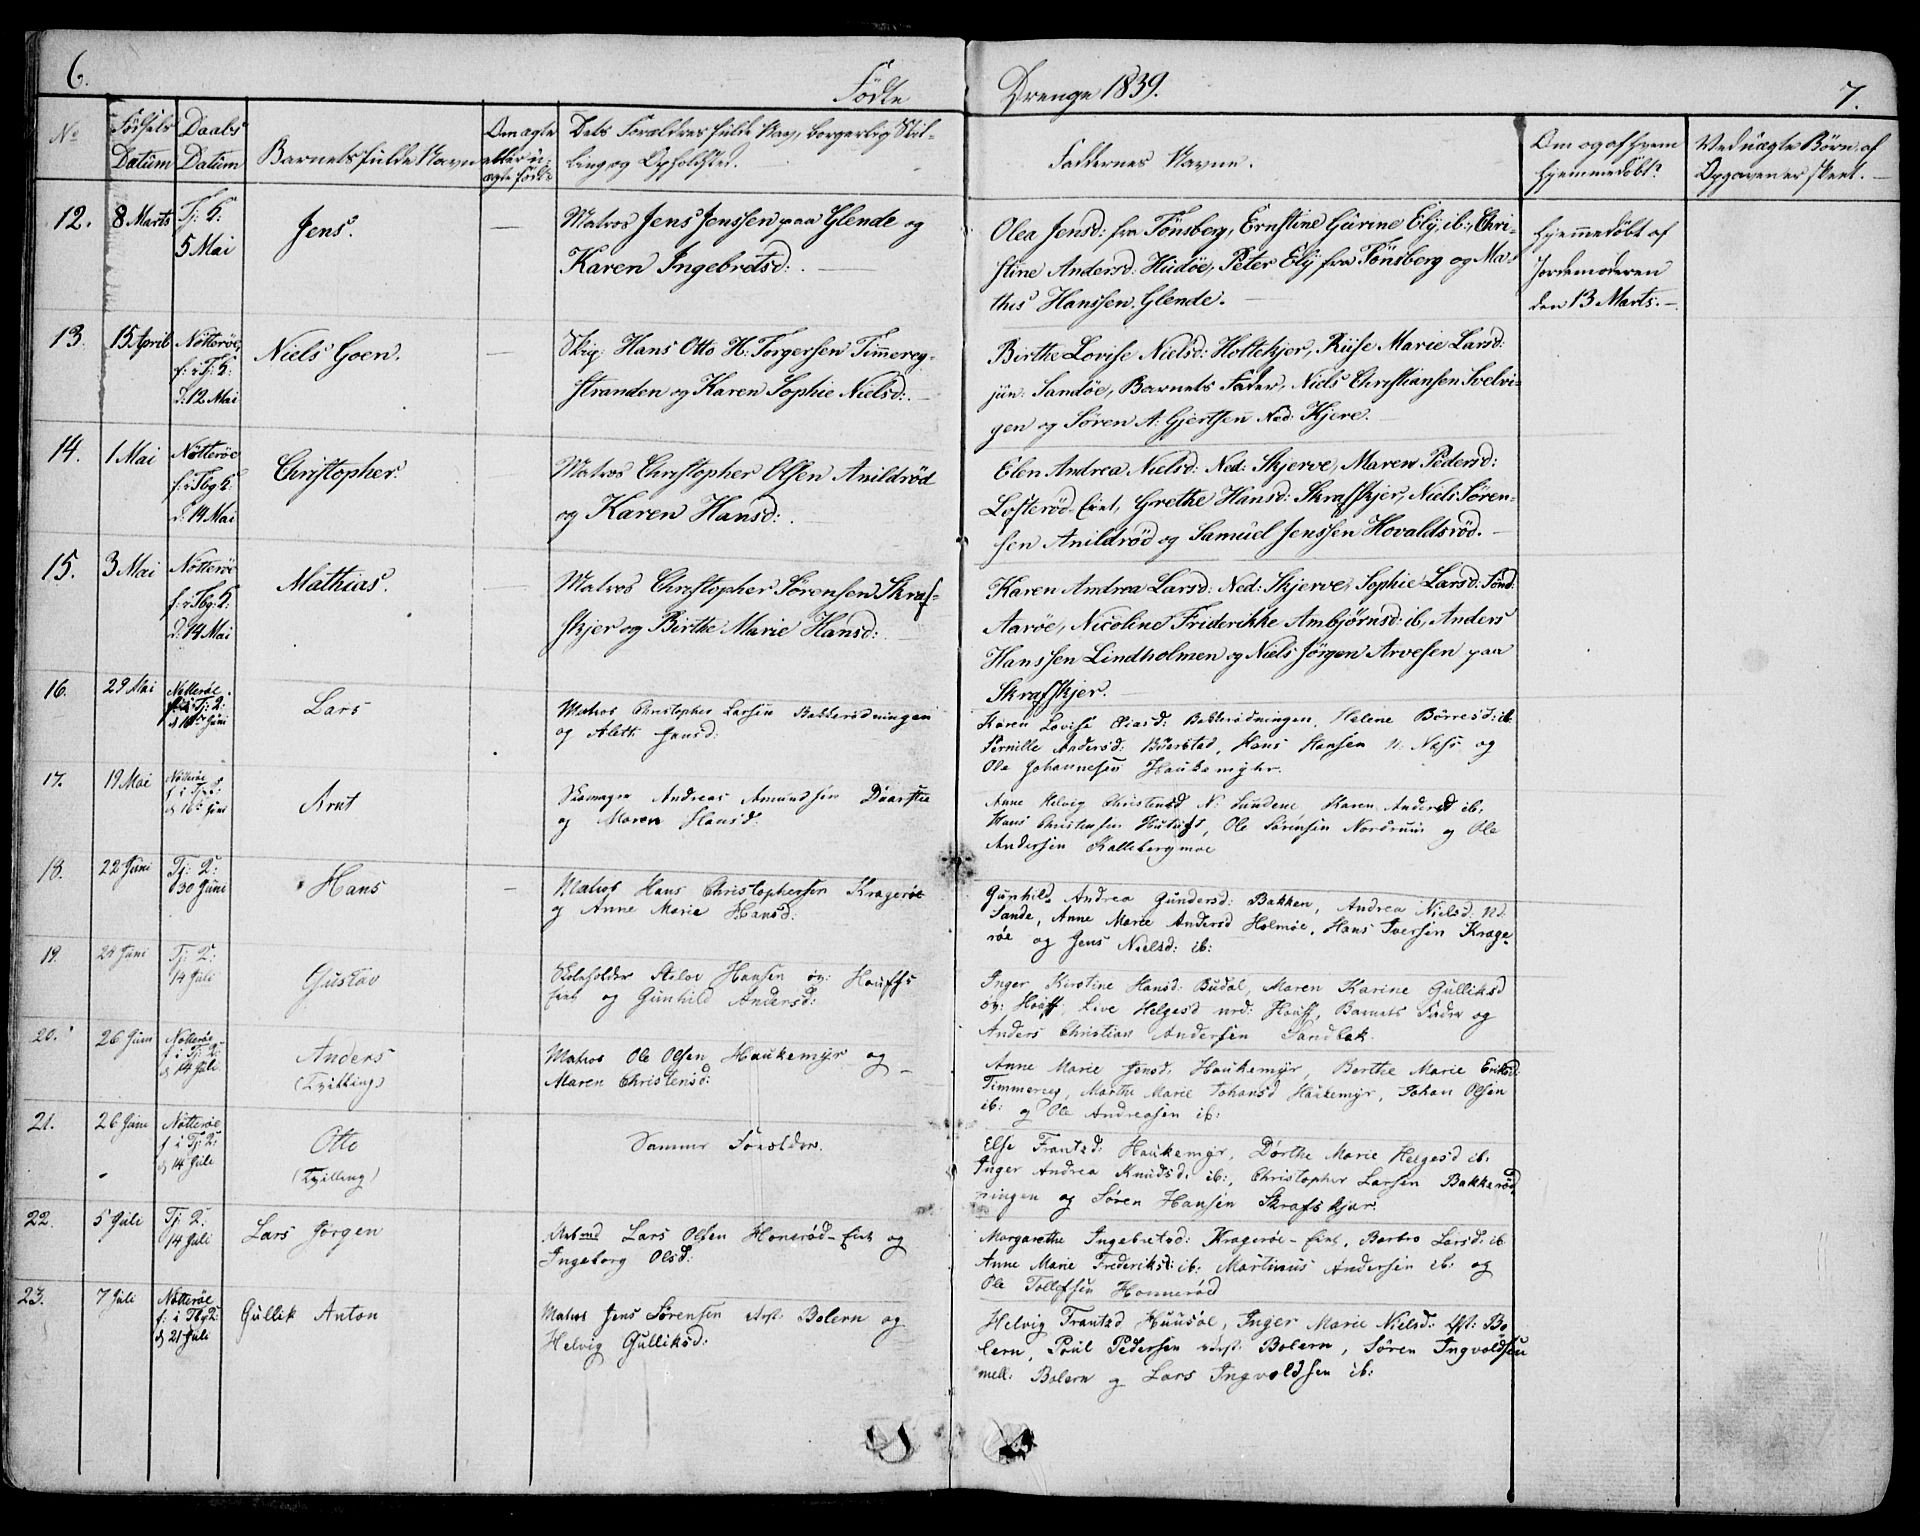 6.
Födte
Drenge 1839.
7.
No
Födsels
Datum
Daabs
Datum
Barnets fulde Navn
Om ægte
eller u-
ægte født
Dets Forældres fulde Navn, borgerlig Stil-
ling og Opholdsted.
Faddernes Navne.
Om og af hvem
hjemmedöbt?
Ved uægte Börn af
Opgaven er skeet.
12.
8 Marts
Tj: K:
5 Mai
Jens.
Matros Jens Jenssen paa Glende og
Karen Ingebretsd:
Olea Jensd: fra Tönsberg, Ernstine Gurine Ely, ib:, Chri-
stine Andersd: Hudöe, Peter Ely fra Tönsberg og Ma-
this Hanssen Glende.
Hjemmedöbt af
Jordemoderen
den 13 Marts.
13.
15 April
Nötteröe
f: i Tj: K:
d: 12 Mai
Niels Goen.
Skip: Hans Otto H: Torgersen Timmereg-
stranden og Karen Sophie Nielsd:
Birthe Lovise Nielsd: Holtekjer, Riise Marie Larsd:
jun: Sandöe, Barnets Fader, Niels Christiansen Svelvi-
gen og Sören A: Gjertsen Ned: Kjere.
14.
1 Mai
Nötteröe
f: i Tbg K:
d: 14 Mai
Christopher.
Matros Christopher Olsen Anildröd
og Karen Hansd:
Elen Andrea Nielsd: Ned: Skjerve, Maren Pedersd:
Lofteröd-Eiet, Grethe Hansd: Skrafskjer, Niels Sören-
sen Anildröd og Samuel Jenssen Hovaldsröd.
15.
3 Mai
Nötteröe
f: i Tbg: K:
d: 14 Mai
Mathias.
Matros Christopher Sörensen Skraf-
skjer og Birthe Marie Hansd:
Karen Andrea Larsd: Ned: Skjerve, Sophie Larsd: Sönd:
Aaröe, Nicoline Friderikke Ambjörnsd: ib, Anders
Hanssen Lindholmen og Niels Jörgen Arvesen paa
Skrafskjer.
16.
29 Mai
Nötteröe
f: i Tj: K:
d 16 Juni
Lars
Matros Christopher Larsen Bakkerödningen
og Aleth Jansd:
Karen Lovise Eliasd: Bakkerödningen, Helene Börresd: ib
Pernille Andersd: Buerstad, Hans Hansen N: Næss og
Ole Johannesen Haukemyhr.
17.
19 Mai
Nötteröe
f i Tj: K:
d 16 Juni
Arnt
Skomager Andreas Amundsen
og Maren Hansd:
Anne Helvig Christensd N: Lundene, Karen Andersd ib.
Hans Christensen, Ole Sörensen Nordrum og Ole
Andersen Kallebergmoe
18.
22 Juni
Tj: K:
30 Juni
Hans
Matros Hans Christophersen Krageröe
og Anne Marie Hansd:
Gunhild Andrea Gundersd: Bakken, Andrea Nielsd: Nd:
Sande, Anne Marie Andersd Holmöe, Hans Iversen Krage-
röe og Jens Nielsd: ib:
19.
24 Juni
Tj: K:
14 Juli
Gustav
Skoleholder Hansen öv: Houffs
Eiet og Gunhild Andersd:
Inger Kirstine Hansd: Budal, Maren Karine Gulliksd
öv: Houff, Live Helgesd ned: Houff, Barnets Fader og
Anders Christian Andersen Sandbek.
20.
26 Juni
Nötteröe
f i Tj: K:
d 14 Juli
Anders
(Tvilling)
Matros Ole Olsen Haukemyr og
Maren Christensd:
Anne Marie Jensd. Haukemyr, Berthe Marie Eriksd
Timmereg, Marthe Marie Johansd Haukemyr, Johan Olsen
ib: og Ole Andreasen ib:
21.
26 Juni
Nötteröe
f i Tj: K:
d 14 Juli
Otto
(Tvilling)
Samme Forældre.
Else Frantzd: Haukemyr, Dörthe Marie Helgesd ib.
Inger Andrea Knudsd. ib:, Christopher Larsen Bakkeröd-
ningen og Sören Hansen Skrafskjær.
22.
5 Juli
Tj: K:
14 Juli
Lars Jörgen
Lars Olsen Honeröd-Eiet og
Ingeborg Olsd:
Margarethe Ingebretsd: Krageröe-Eiet, Barbro Larsd. ib
Anne Marie Frederiksd: ib: Martinus Andersen ib: og
Ole Tollefsen Honneröd
23.
7 Juli
Nötteröe
f: i Tbg K:
d 21 Juli
Gullik Anton
Matros Jens Sörensen Bolern og
Helvig Gulliksd:
Helvig Frantzd Huusöe, Inger Marie Nielsd. Bo-
lern, Poul Pedersen Bolern, Sören Ingvoldsen
mell: Bolern og Lars Ingvoldsen ib: